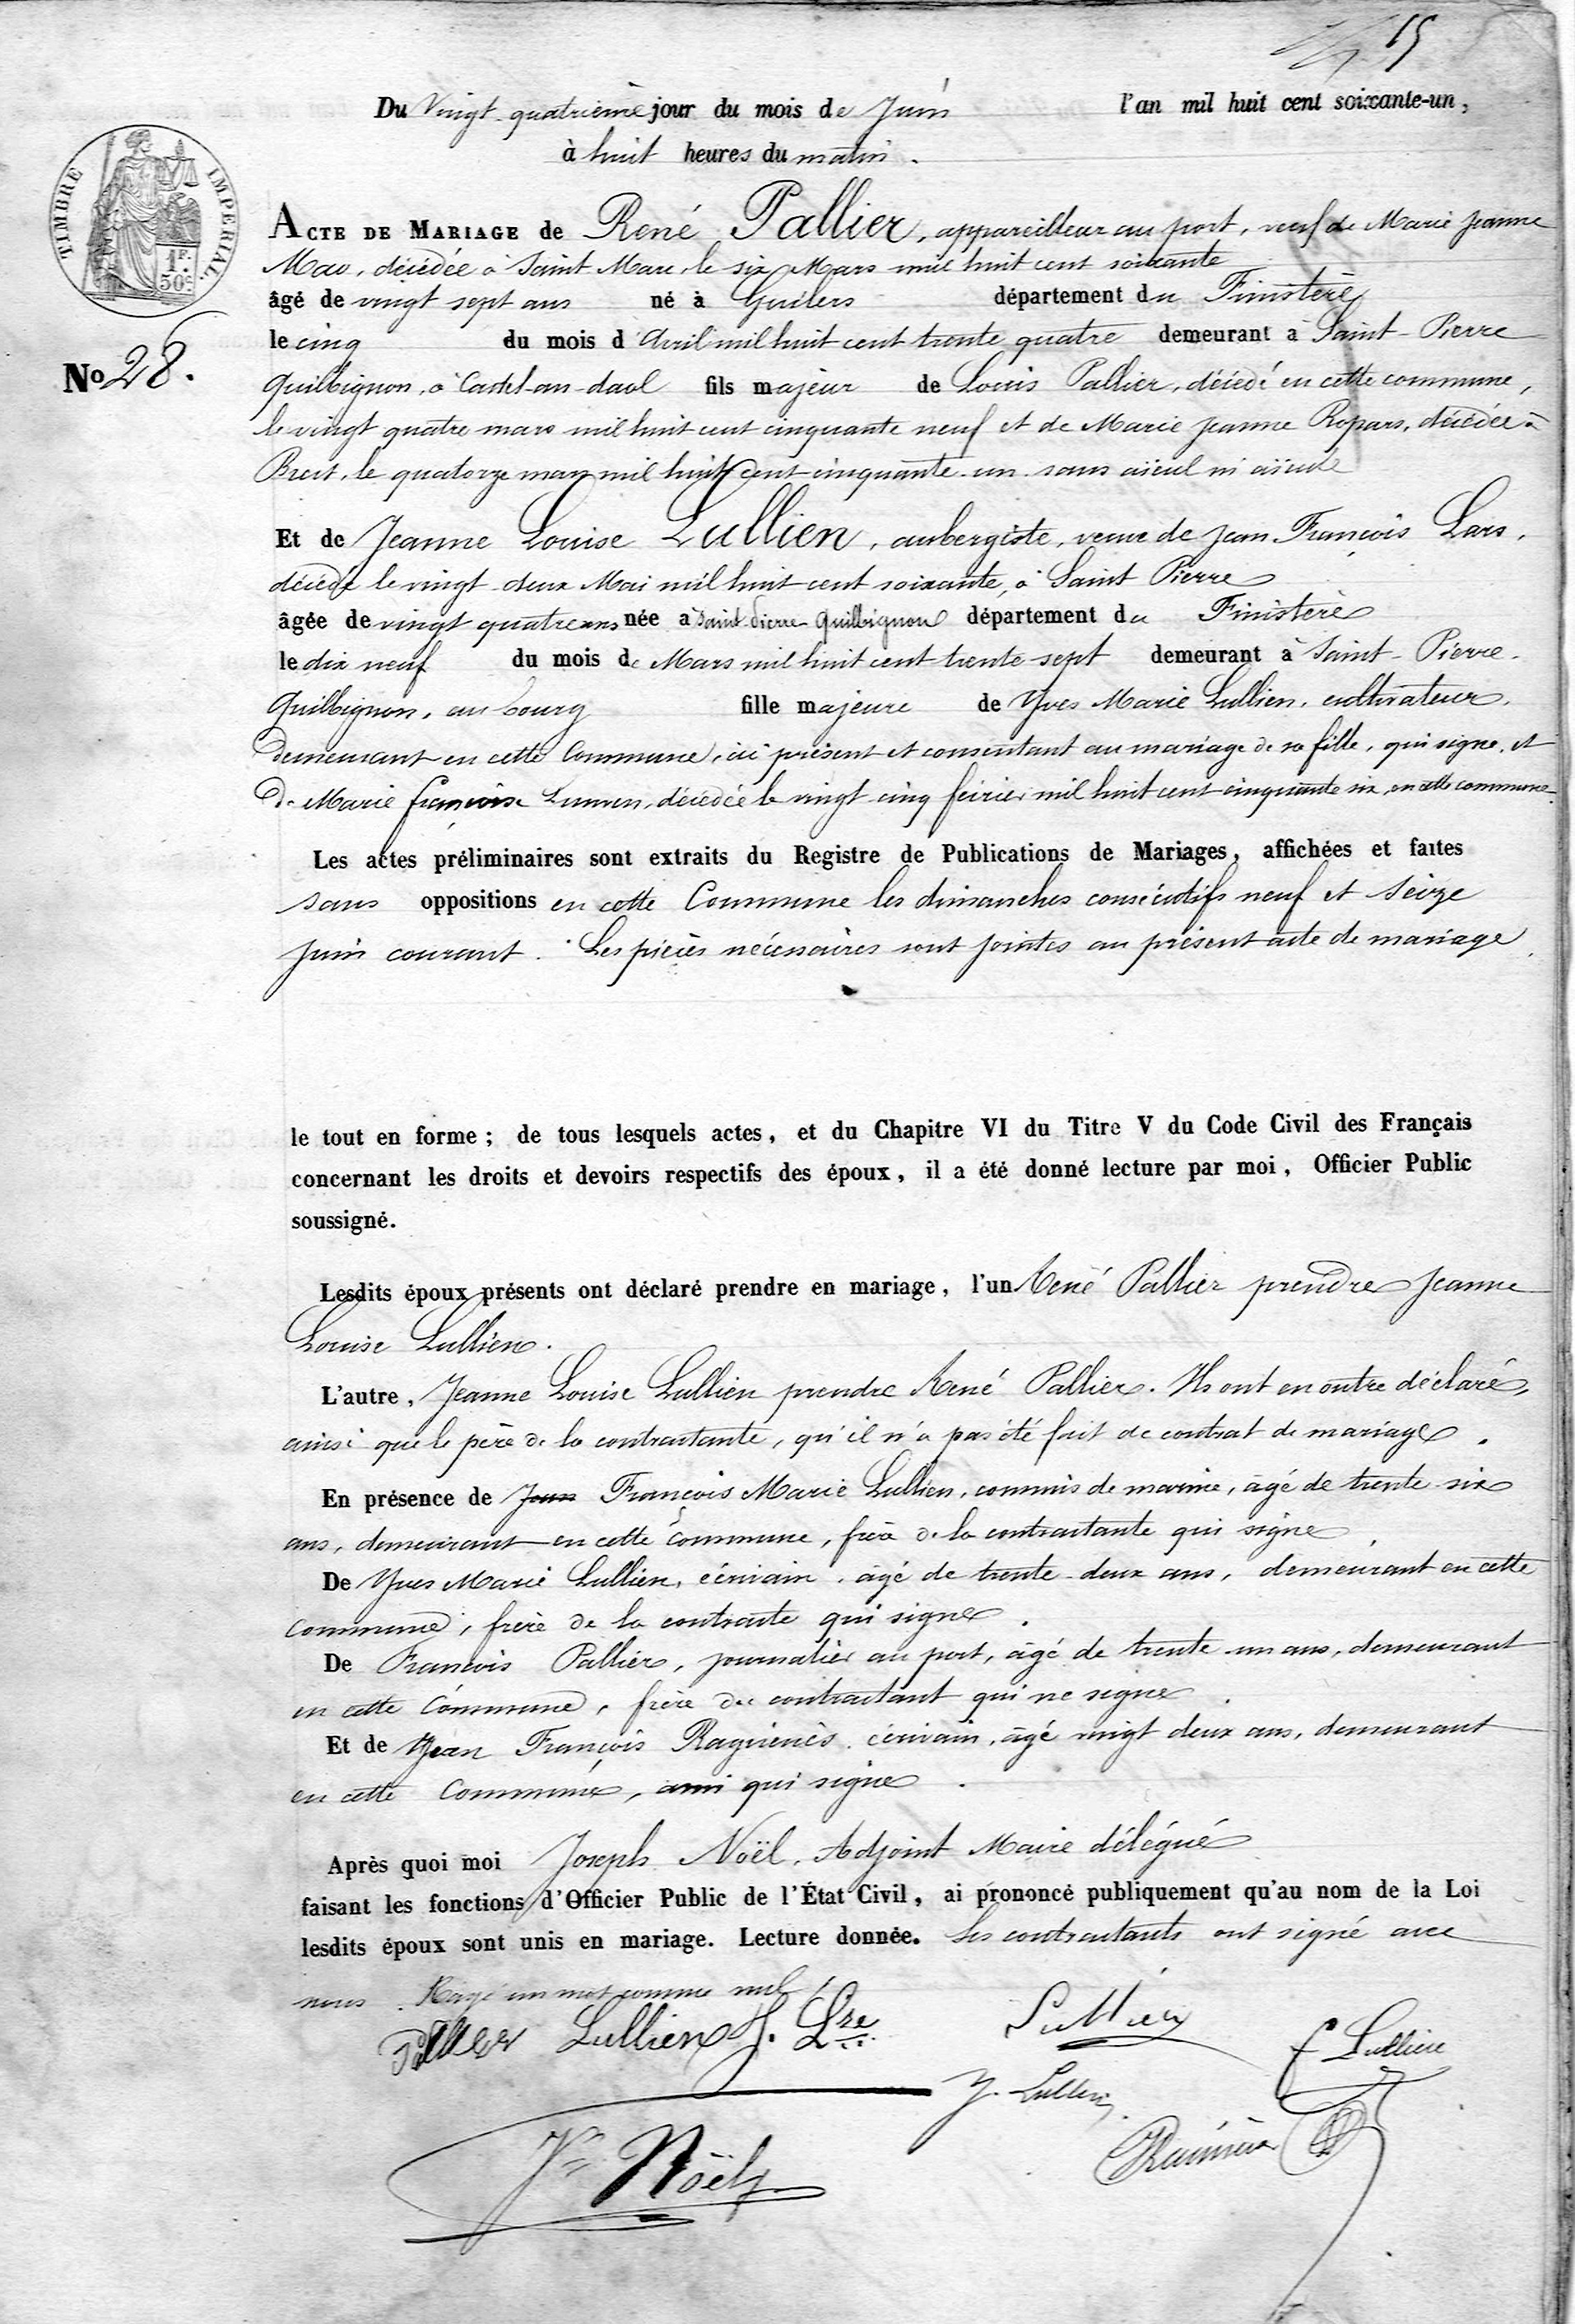 15
Du Vingt quatrième jour du mois de Juin l'an mil huit cent soixante-un,
à huit heures du matin.
TIMBRE IMPERIAL.
1 F. 50 C.
No 28.
ACTE DE MARIAGE de René Pallier, appareilleur au port, veuf de Marie Jeanne
décédée à Saint Marc, le six Mars mil huit cent soixante
âgé de vingt sept ans né à Guilers département du Finistère
le cinq du mois d'Avril mil huit cent trente quatre demeurant à Saint-Pierre
Quilbignon, à Castel-an-daol fils majeur de Louis Pallier, décédé en cette commune,
le vingt quatre mars mil huit cent cinquante neuf et de Marie Jeanne Ropars, décédée à
Brest, le quatorze mars mil huit cent cinquante-un sans aïeul ni aïeule
Et de Jeanne Louise Lullien, aubergiste, veuve de Jean François Lars,
décédé le vingt-deux Mai mil huit cent soixante, à Saint Pierre
âgée de vingt quatre ans née à Saint-Pierre-Quilbignon département du Finistère
le dix neuf du mois de Mars mil huit cent trente-sept demeurant à Saint-Pierre-
Quilbignon, au bourg fille majeure de Yves Marie Lullien, cultivateur,
demeurant en cette Commune, ici présent et consentant au mariage de sa fille, qui signe, et
de Marie françoise Lunven, décédée le vingt cinq février mil huit cent cinquante six, en cette commune.
Les actes préliminaires sont extraits du Registre de Publications de Mariages, affichées et faites
sans oppositions en cette Commune les dimanches consécutifs neuf et seize
Juin courant. Les pièces nécessaires sont jointes au présent acte de mariage.
le tout en forme ; de tous lesquels actes, et du Chapitre VI du Titre V du Code Civil des Français
concernant les droits et devoirs respectifs des époux, il a été donné lecture par moi, Officier Public
soussigné.
Lesdits époux présents ont déclaré prendre en mariage, l'un René Pallier prendre Jeanne
Louise Lullien.
L'autre, Jeanne Louise Lullien prendre René Pallier. Ils ont en outre déclaré,
ainsi que le père de la contractante, qu'il n'a pas été fait de contrat de mariage.
En présence de Jean François Marie Lullien, commis de marine, âgé de trente-six
ans, demeurant en cette commune, frère de la contractante qui signe
De Yves Marie Lullien, écrivain, âgé de trente-deux ans, demeurant en cette
commune, frère de la contracte qui signe.
De François Pallier, journalier au port, âgé de trente-un ans, demeurant
en cette Commune, frère du contractant qui ne signe.
Et de Jean François Raguénès, écrivain, âgé vingt deux ans, demeurant
en cette Commune, ami qui signe.
Après quoi moi Joseph Noël, Adjoint Maire délégué
faisant les fonctions d'Officier Public de l'État Civil, ai prononcé publiquement qu'au nom de la Loi
lesdits époux sont unis en mariage. Lecture donnée. Les contractants ont signé avec
nous. Rayé un mot comme nul
Pallier Lullien J. Lse Lullien f Lullien
Y. Lullien
Jh Noël